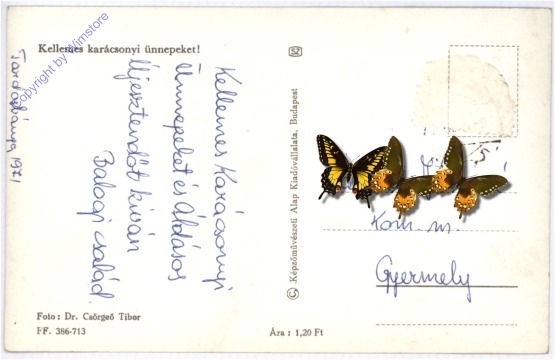 Kellemes karácsonyi ünnepeket!
Copyright by Wimstore
1971
Kellemes Karácsonyi
Ünnepeket és Áldásos
Újesztendőt kíván
Balogi család.
Foto: Dr. Csörgeő Tibor
FF. 386-713
© Képzőművészeti Alap Kiadóvállalata, Budapest
Ára: 1,20 Ft
Kom. m.
Gyermely